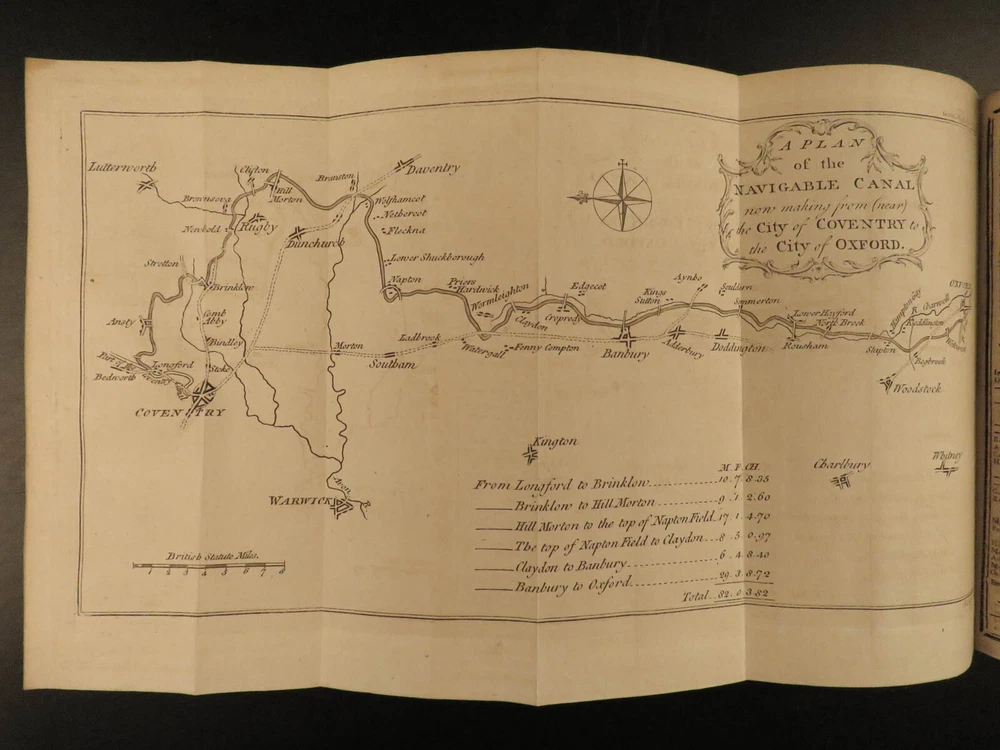 A PLAN
of the
NAVIGABLE CANAL
now making from (near)
the City of COVENTRY to
the City of OXFORD.
Lutterworth
Clifton
Hill
Morton
Brownsova
Newbold
Rugby
Branston
Daventry
Wolfhamcot
Nethercot
Flockna
Dunchurch
Lower Shuckborough
Stretton
Brinklow
Napton
Priors
Hardwick
Wormleighton
Edgcot
Aynho
Kings
Sutton
Souldurn
Sommerton
Ansty
Comb
Abby
Bindley
Claydon
Cropredy
Lower Heyford
North Brook
Hampton Gay
R. Charwell
Kiddlington
OXFORD
Longford
Stoke
Bedworth
COVENTRY
Morton
Southam
Ladbrook
Watergall
Fenny Compton
Banbury
Adderbury
Doddington
Rousham
Shipton
Begbrook
Woodstock
Kington
Charlbury
Whitney
WARWICK
Avon R.
M. F. CH.
From Longford to Brinklow 10.7.8.35
Brinklow to Hill Morton 9.1.2.60
Hill Morton to the top of Napton Field 17.1.4.70
The top of Napton Field to Claydon 8.5.0.97
Claydon to Banbury 6.4.8.40
Banbury to Oxford 29.3.8.72
Total 82.0.3.82
British Statute Miles.
1 2 3 4 5 6 7 8